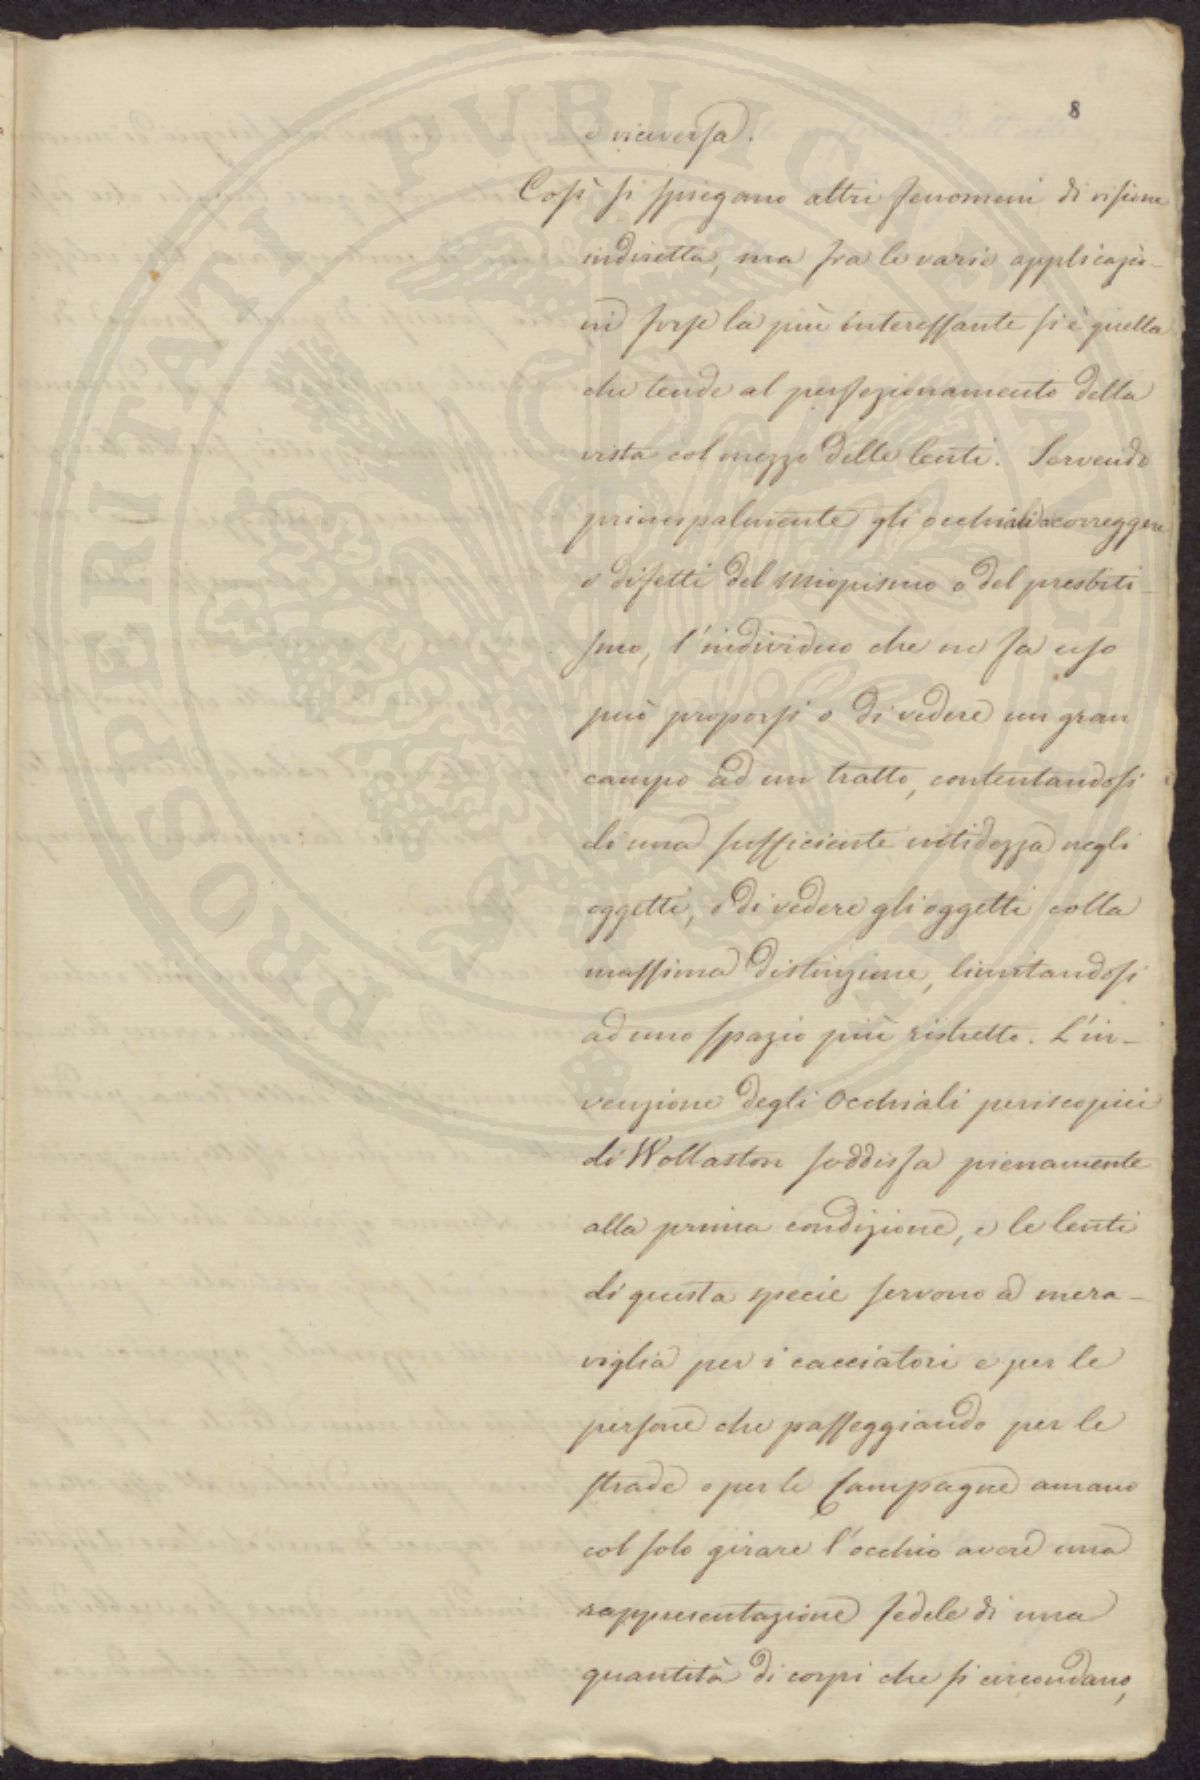 8
e viceversa.
Così si spiegano altri fenomeni di visione
indiretta, ma fra le varie applicazio-
ni forse la più interessante si è quella
che tende al perfezionamento della
vista col mezzo delle lenti. Servendo
principalmente gli occhiali a correggere
i difetti del miopismo o del presbiti-
smo, l'individuo che ne fa uso
può proporsi o di vedere un gran
campo ad un tratto, contentandosi
di una sufficiente nitidezza negli
oggetti, o di vedere gli oggetti colla
massima distinzione, limitandosi
ad uno spazio più ristretto. L'in-
venzione degli Occhiali periscopici
di Wollaston soddisfa pienamente
alla prima condizione, e le lenti
di questa specie servono a mera-
viglia per i cacciatori e per le
persone che passeggiando per le
strade o per le Campagne amano
col solo girare l'occhio avere una
rappresentazione fedele di una
quantità di corpi che si circondano,
PROSPERITATI PUBLICAE AUGENDAE